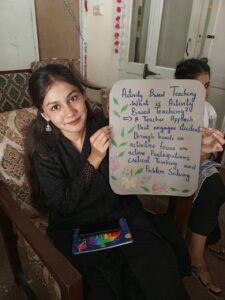 Activity Based Teaching
What is Activity
Based Teaching?
=> A Teacher Approach
that engages
through hands on
activities focus on
active Participations
Critical Thinking and
Problem Solving